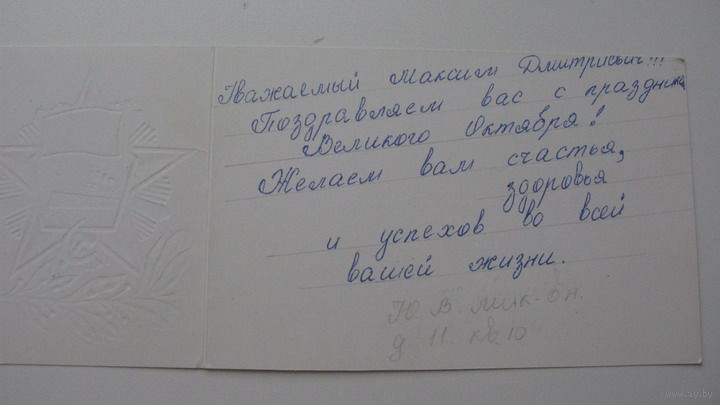 Уважаемый Максим Дмитриевич!!!
Поздравляем вас с праздником
Великого Октября!
Желаем вам счастья,
здоровья
и успехов во всей
вашей жизни.
Ю. В. мик-он.
д 11. кв. 10
www.ay.by